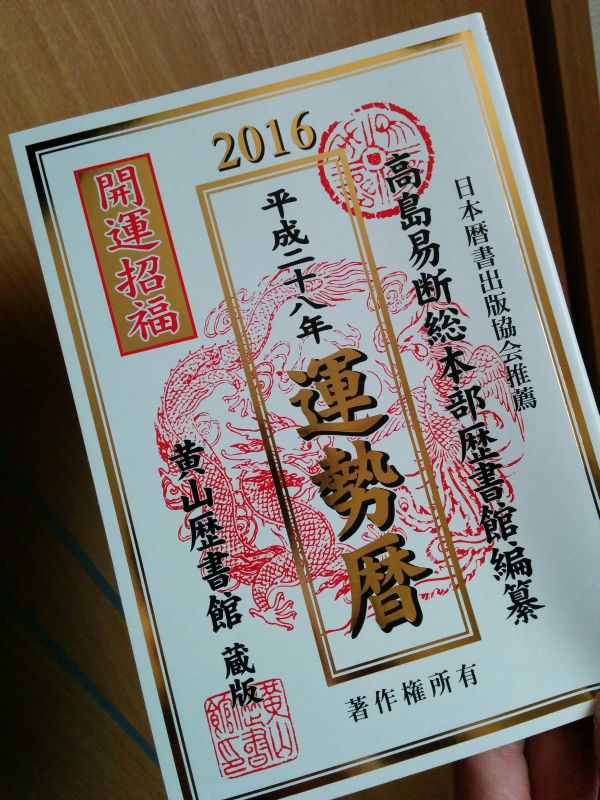 2016
日本暦書出版協会推薦
高島易断総本部歴書館編纂
平成二十八年
運勢暦
開運招福
黄山歴書館 蔵版
著作権所有